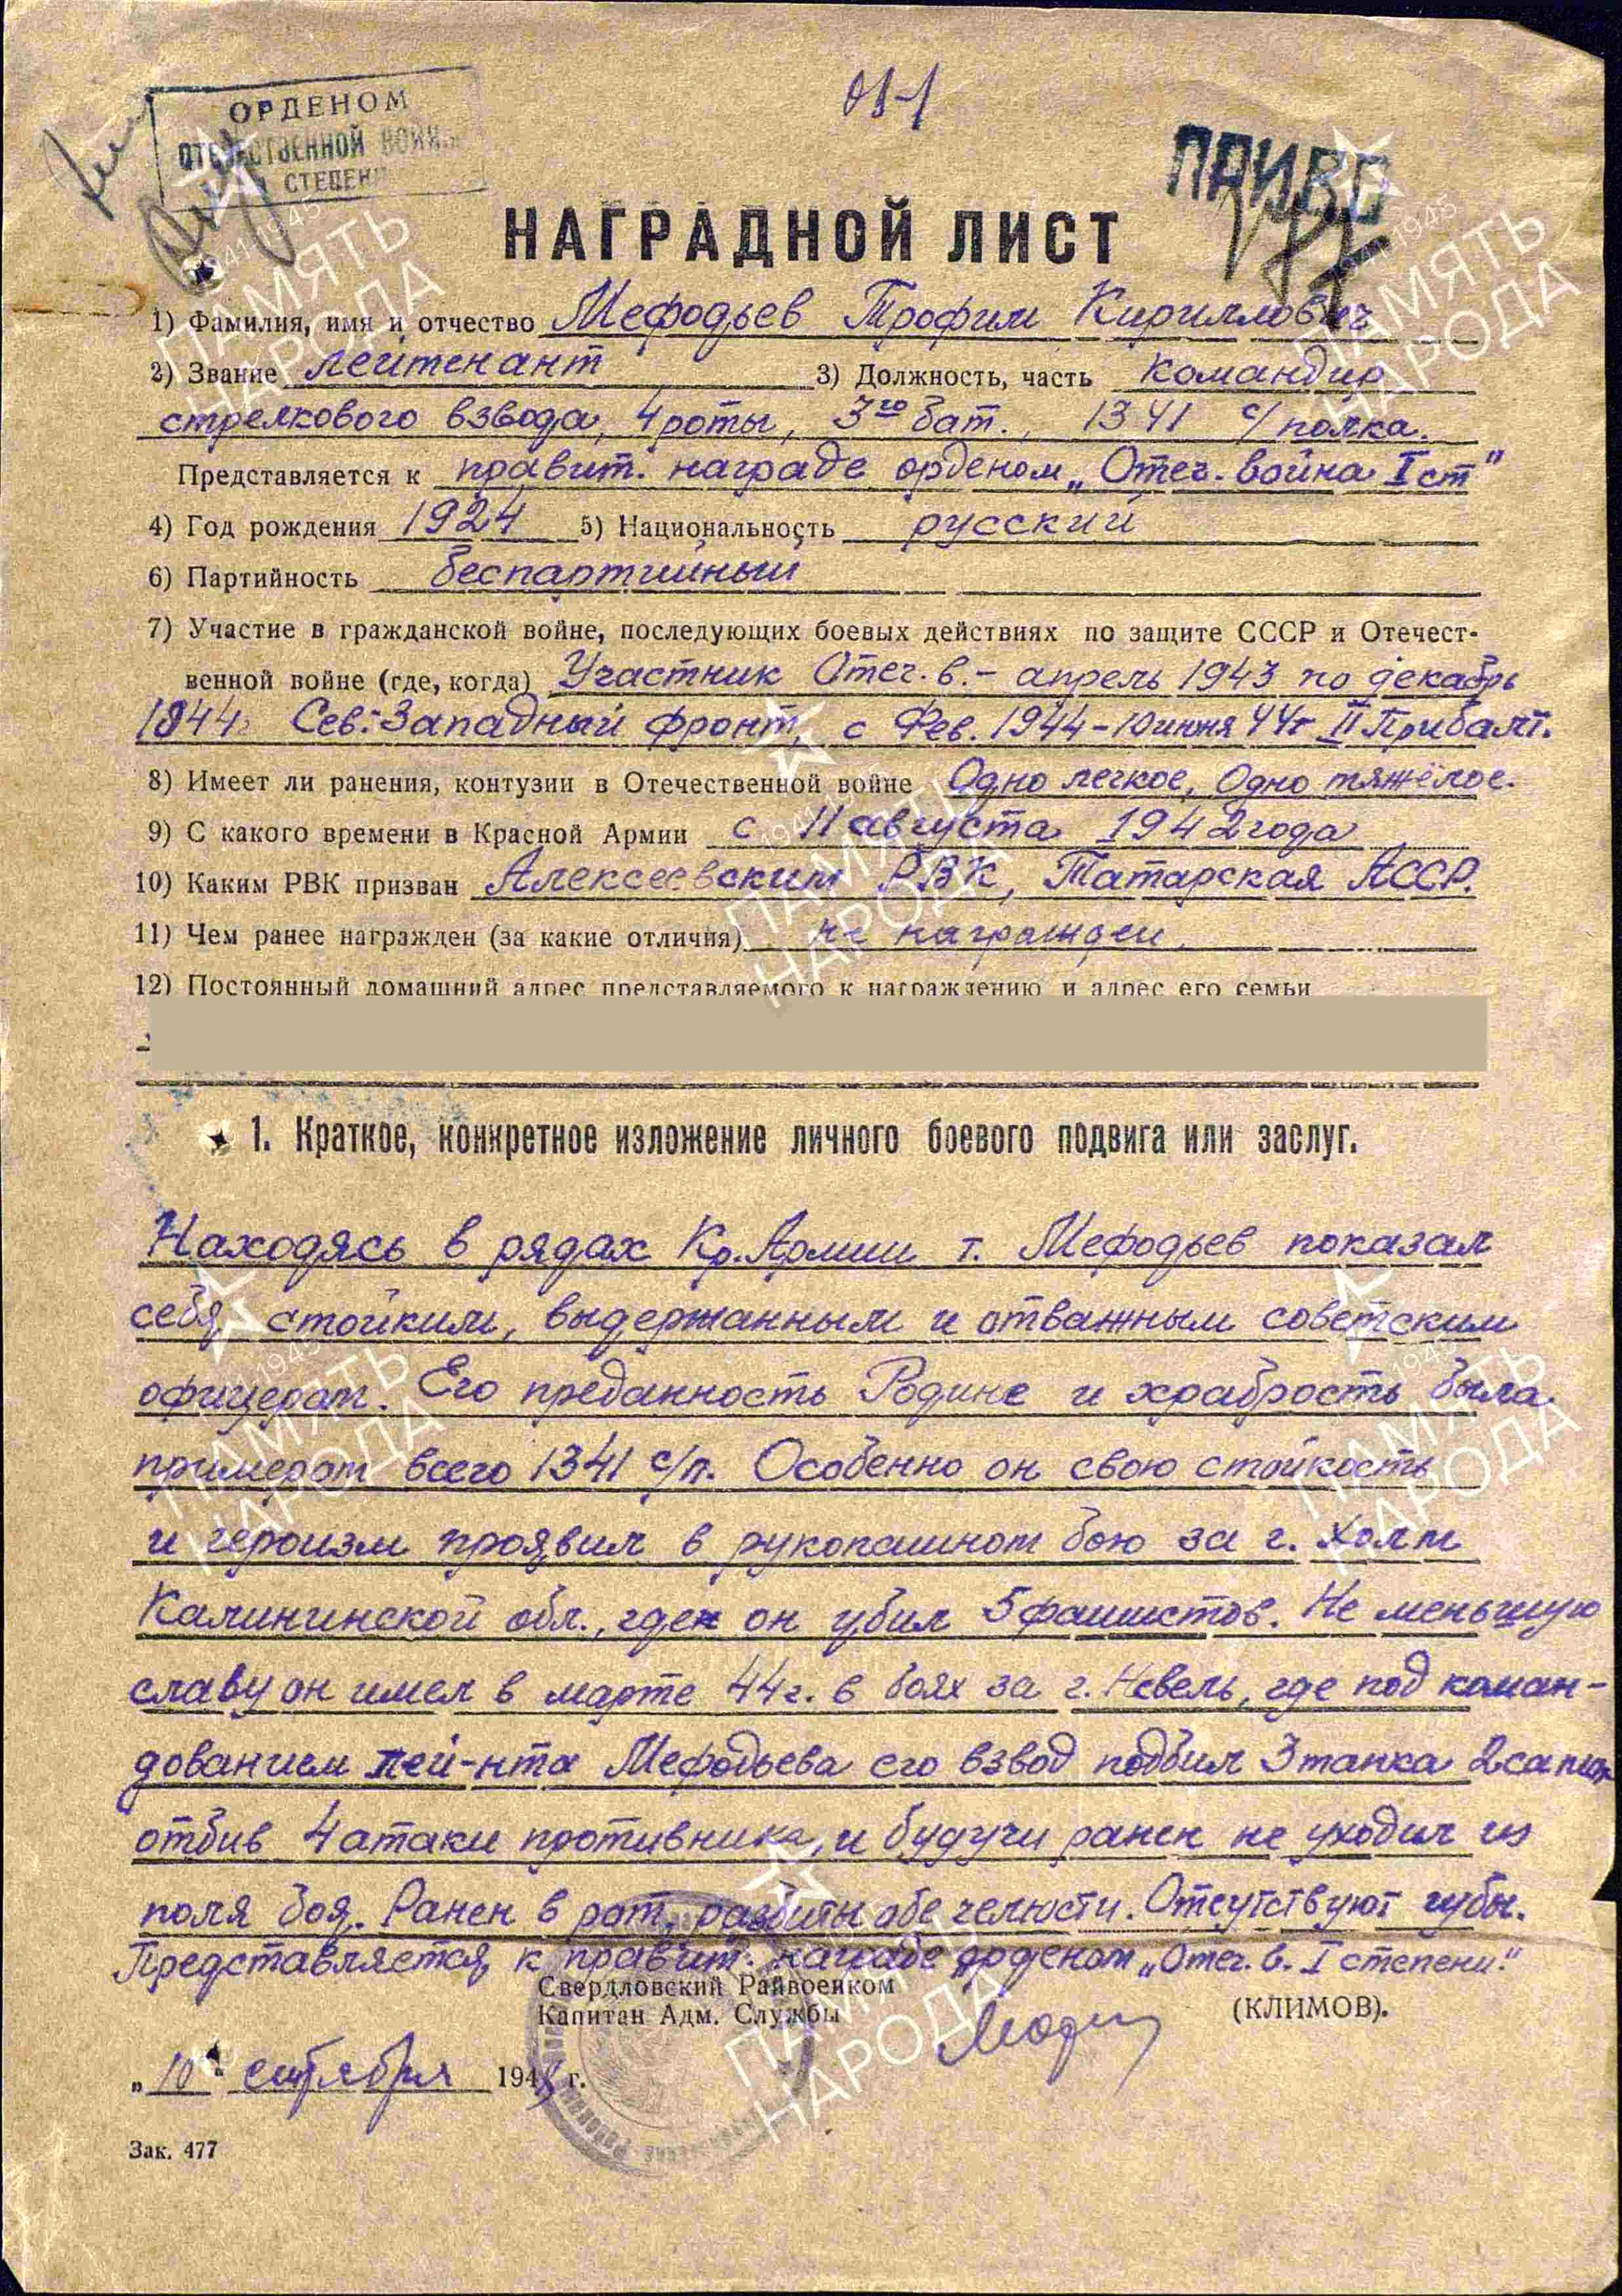 ОРДЕНОМ
ОТЕЧЕСТВЕННОЙ ВОЙНЫ
СТЕПЕНИ
ПРИВО
НАГРАДНОЙ ЛИСТ
1) Фамилия, имя и отчество Мефодьев Трофим Кириллович
2) Звание лейтенант 3) Должность, часть командир
стрелкового взвода, 4 роты, 3го бат., 1341 с/полка.
Представляется к правит. награде орденом „Отеч. война I ст"
4) Год рождения 1924 5) Национальность русский
6) Партийность беспартийный
7) Участие в гражданской войне, последующих боевых действиях по защите СССР и Отечест-
венной войне (где, когда) Участник Отеч. в. – апрель 1943 по декабрь
1944 Сев.-Западный фронт, с Фев. 1944 – 10 июня 44г II Прибалт.
8) Имеет ли ранения, контузии в Отечественной войне Одно легкое, Одно тяжёлое.
9) С какого времени в Красной Армии с 11 августа 1942 года
10) Каким РВК призван Алексеевским РВК, Татарская АССР.
11) Чем ранее награжден (за какие отличия) не награжден
12) Постоянный домашний адрес представляемого к награждению и адрес его семьи
1. Краткое, конкретное изложение личного боевого подвига или заслуг.
Находясь в рядах Кр. Армии т. Мефодьев показал
себя стойким, выдержанным и отважным советским
офицером. Его преданность Родине и храбрость была
примером всего 1341 с/п. Особенно он свою стойкость
и героизм проявил в рукопашном бою за г. Холм
Калининской обл., где он убил 5 фашистов. Не меньшую
славу он имел в марте 44г. в боях за г. Невель, где под коман-
дованием лей-нта Мефодьева его взвод подбил 3 танка 2 самох
отбив 4 атаки противника, и будучи ранен не уходил из
поля боя. Ранен в рот, разбиты обе челюсти. Отсутствуют губы.
Представляется к правит. награде орденом „Отеч. в. I степени."
Свердловский Райвоенком
Капитан Адм. Службы (КЛИМОВ).
„10" сентября 194 г.
Зак. 477
ПАМЯТЬ
НАРОДА
1941-1945